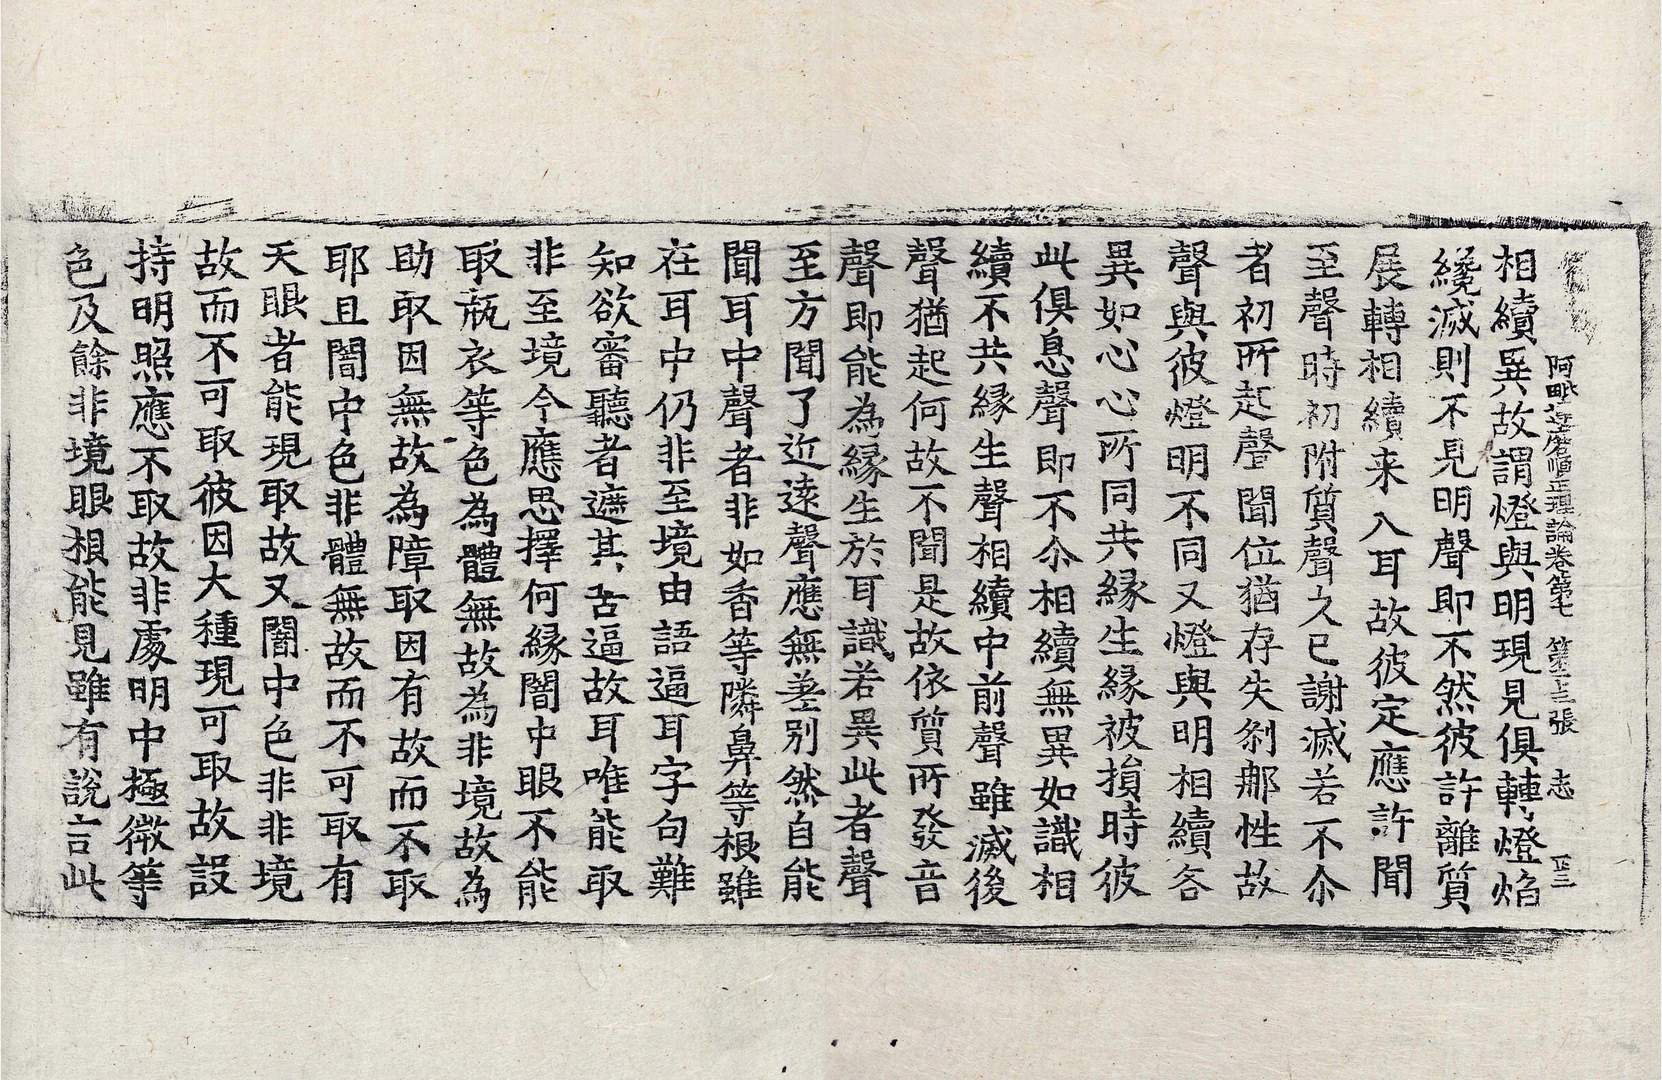 阿毗達磨順正理論卷第七 第十三張 志
相續異故謂燈與明現見俱轉燈焰
纔滅則不見明聲即不然彼許離質
展轉相續来入耳故彼定應許聞
至聲時初附質聲久已謝滅若不尒
者初所起聲聞位猶存失刹那性故
聲與彼燈明不同又燈與明相續各
異如心心所同共縁生縁被損時彼
此俱息聲即不尒相續無異如識相
續不共縁生聲相續中前聲雖滅後
聲猶起何故不聞是故依質所發音
聲即能為縁生於耳識若異此者聲
至方聞了近遠聲應無差别然自能
聞耳中聲者非如香等隣鼻等根雖
在耳中仍非至境由語逼耳字句難
知欲審聽者遮其苦逼故耳唯能取
非至境今應思擇何縁闇中眼不能
取瓶衣等色為體無故為非境故為
助取因無故為障取因有故而不取
耶且闇中色非體無故而不可取有
天眼者能現取故又闇中色非非境
故而不可取彼因大種現可取故設
持明照應不取故非處明中極微等
色及餘非境眼根能見雖有說言此